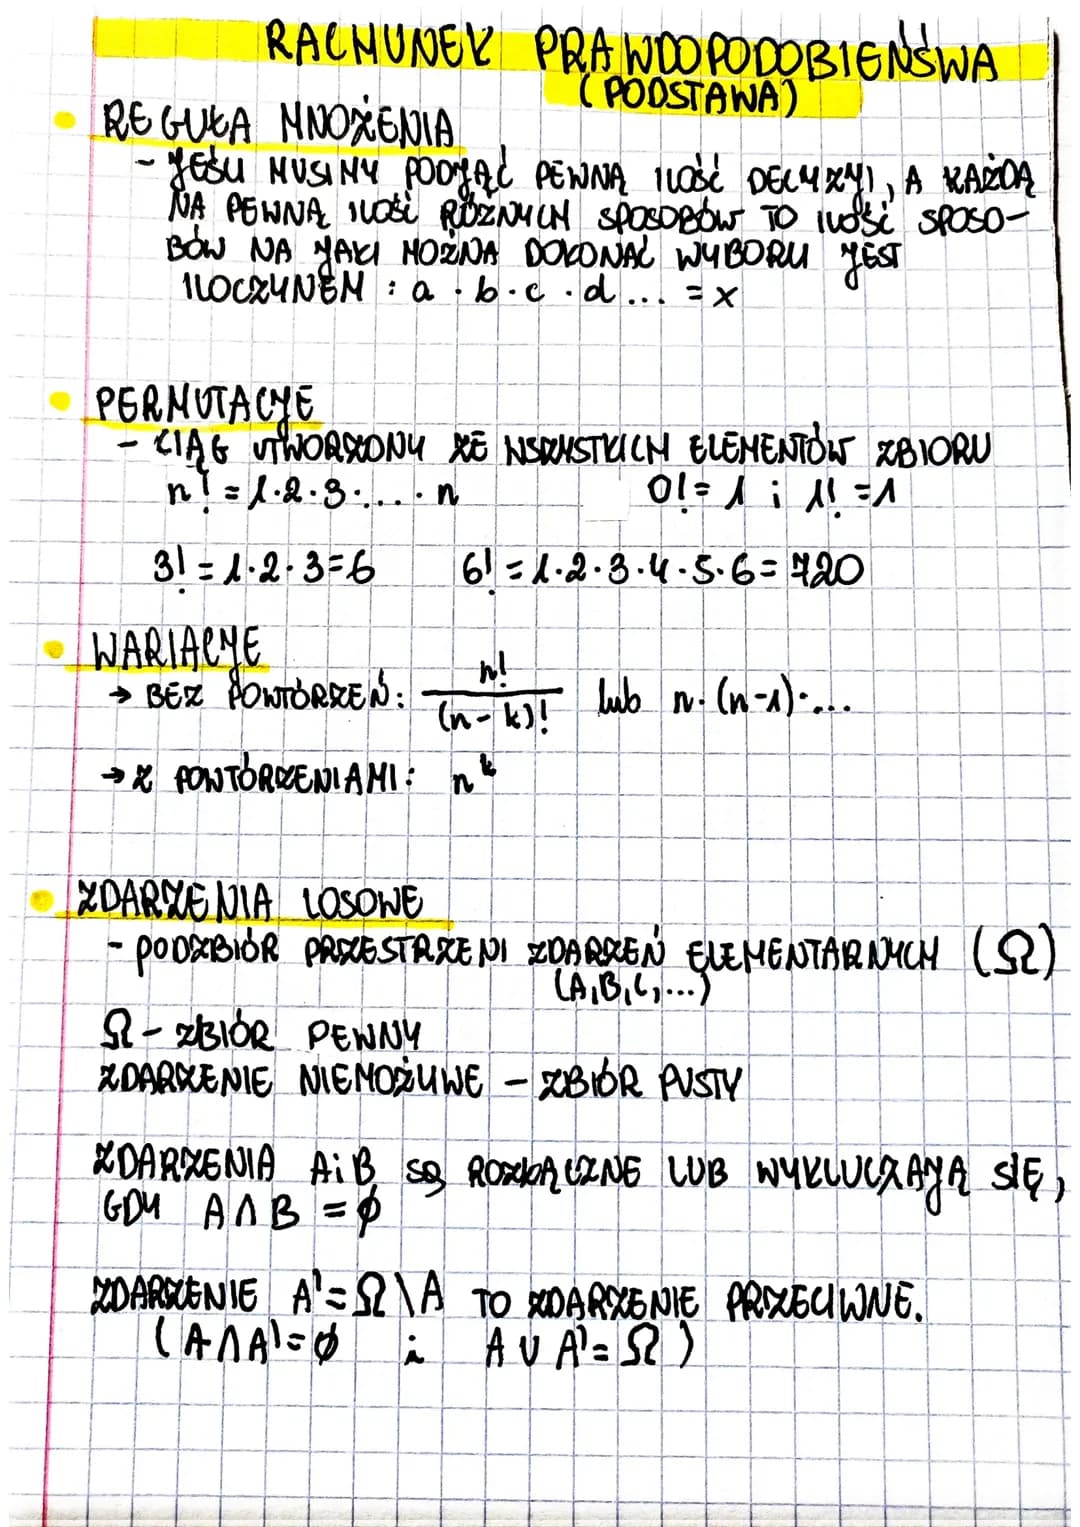 RACHUNEK PRAWDOPODOBIEŃSWA
(PODSTAWA)
REGUŁA MNOŻENIA
- JEŚLI MUSIMY PODJĄĆ PEWNĄ ILOŚĆ DECYZYJI, A KAŻDĄ
NA PEWNĄ ILOŚĆ RÓŻNYCH SPOSOBÓW TO ILOŚĆ SPOSO-
BÓW NA JAKI MOŻNA DOKONAĆ WYBORU JEST
ILOCZYNEM : a · b · c · d ... = x
PERMUTACJE
- CIĄG UTWORZONY ZE WSZYSTKICH ELEMENTÓW ZBIORU
n! = 1·2·3·... · n 0! = 1 i 1! = 1
3! = 1·2·3=6 6! = 1·2·3·4·5·6= 720
WARIACJE
→ BEZ POWTÓRZEŃ: n!/(n-k)! lub n·(n-1)·...
→ Z POWTÓRZENIAMI: n^k
ZDARZENIA LOSOWE
- PODZBIÓR PRZESTRZENI ZDARZEŃ ELEMENTARNYCH (Ω)
(A,B,C,...)
Ω - ZBIÓR PEWNY
ZDARZENIE NIEMOŻLIWE - ZBIÓR PUSTY
ZDARZENIA A i B są ROZŁĄCZNE LUB WYKLUCZAJĄ SIĘ,
GDY A∩B = ∅
ZDARZENIE A'=Ω\A TO ZDARZENIE PRZECIWNE.
(A∩A'=∅ i A∪A'=Ω)